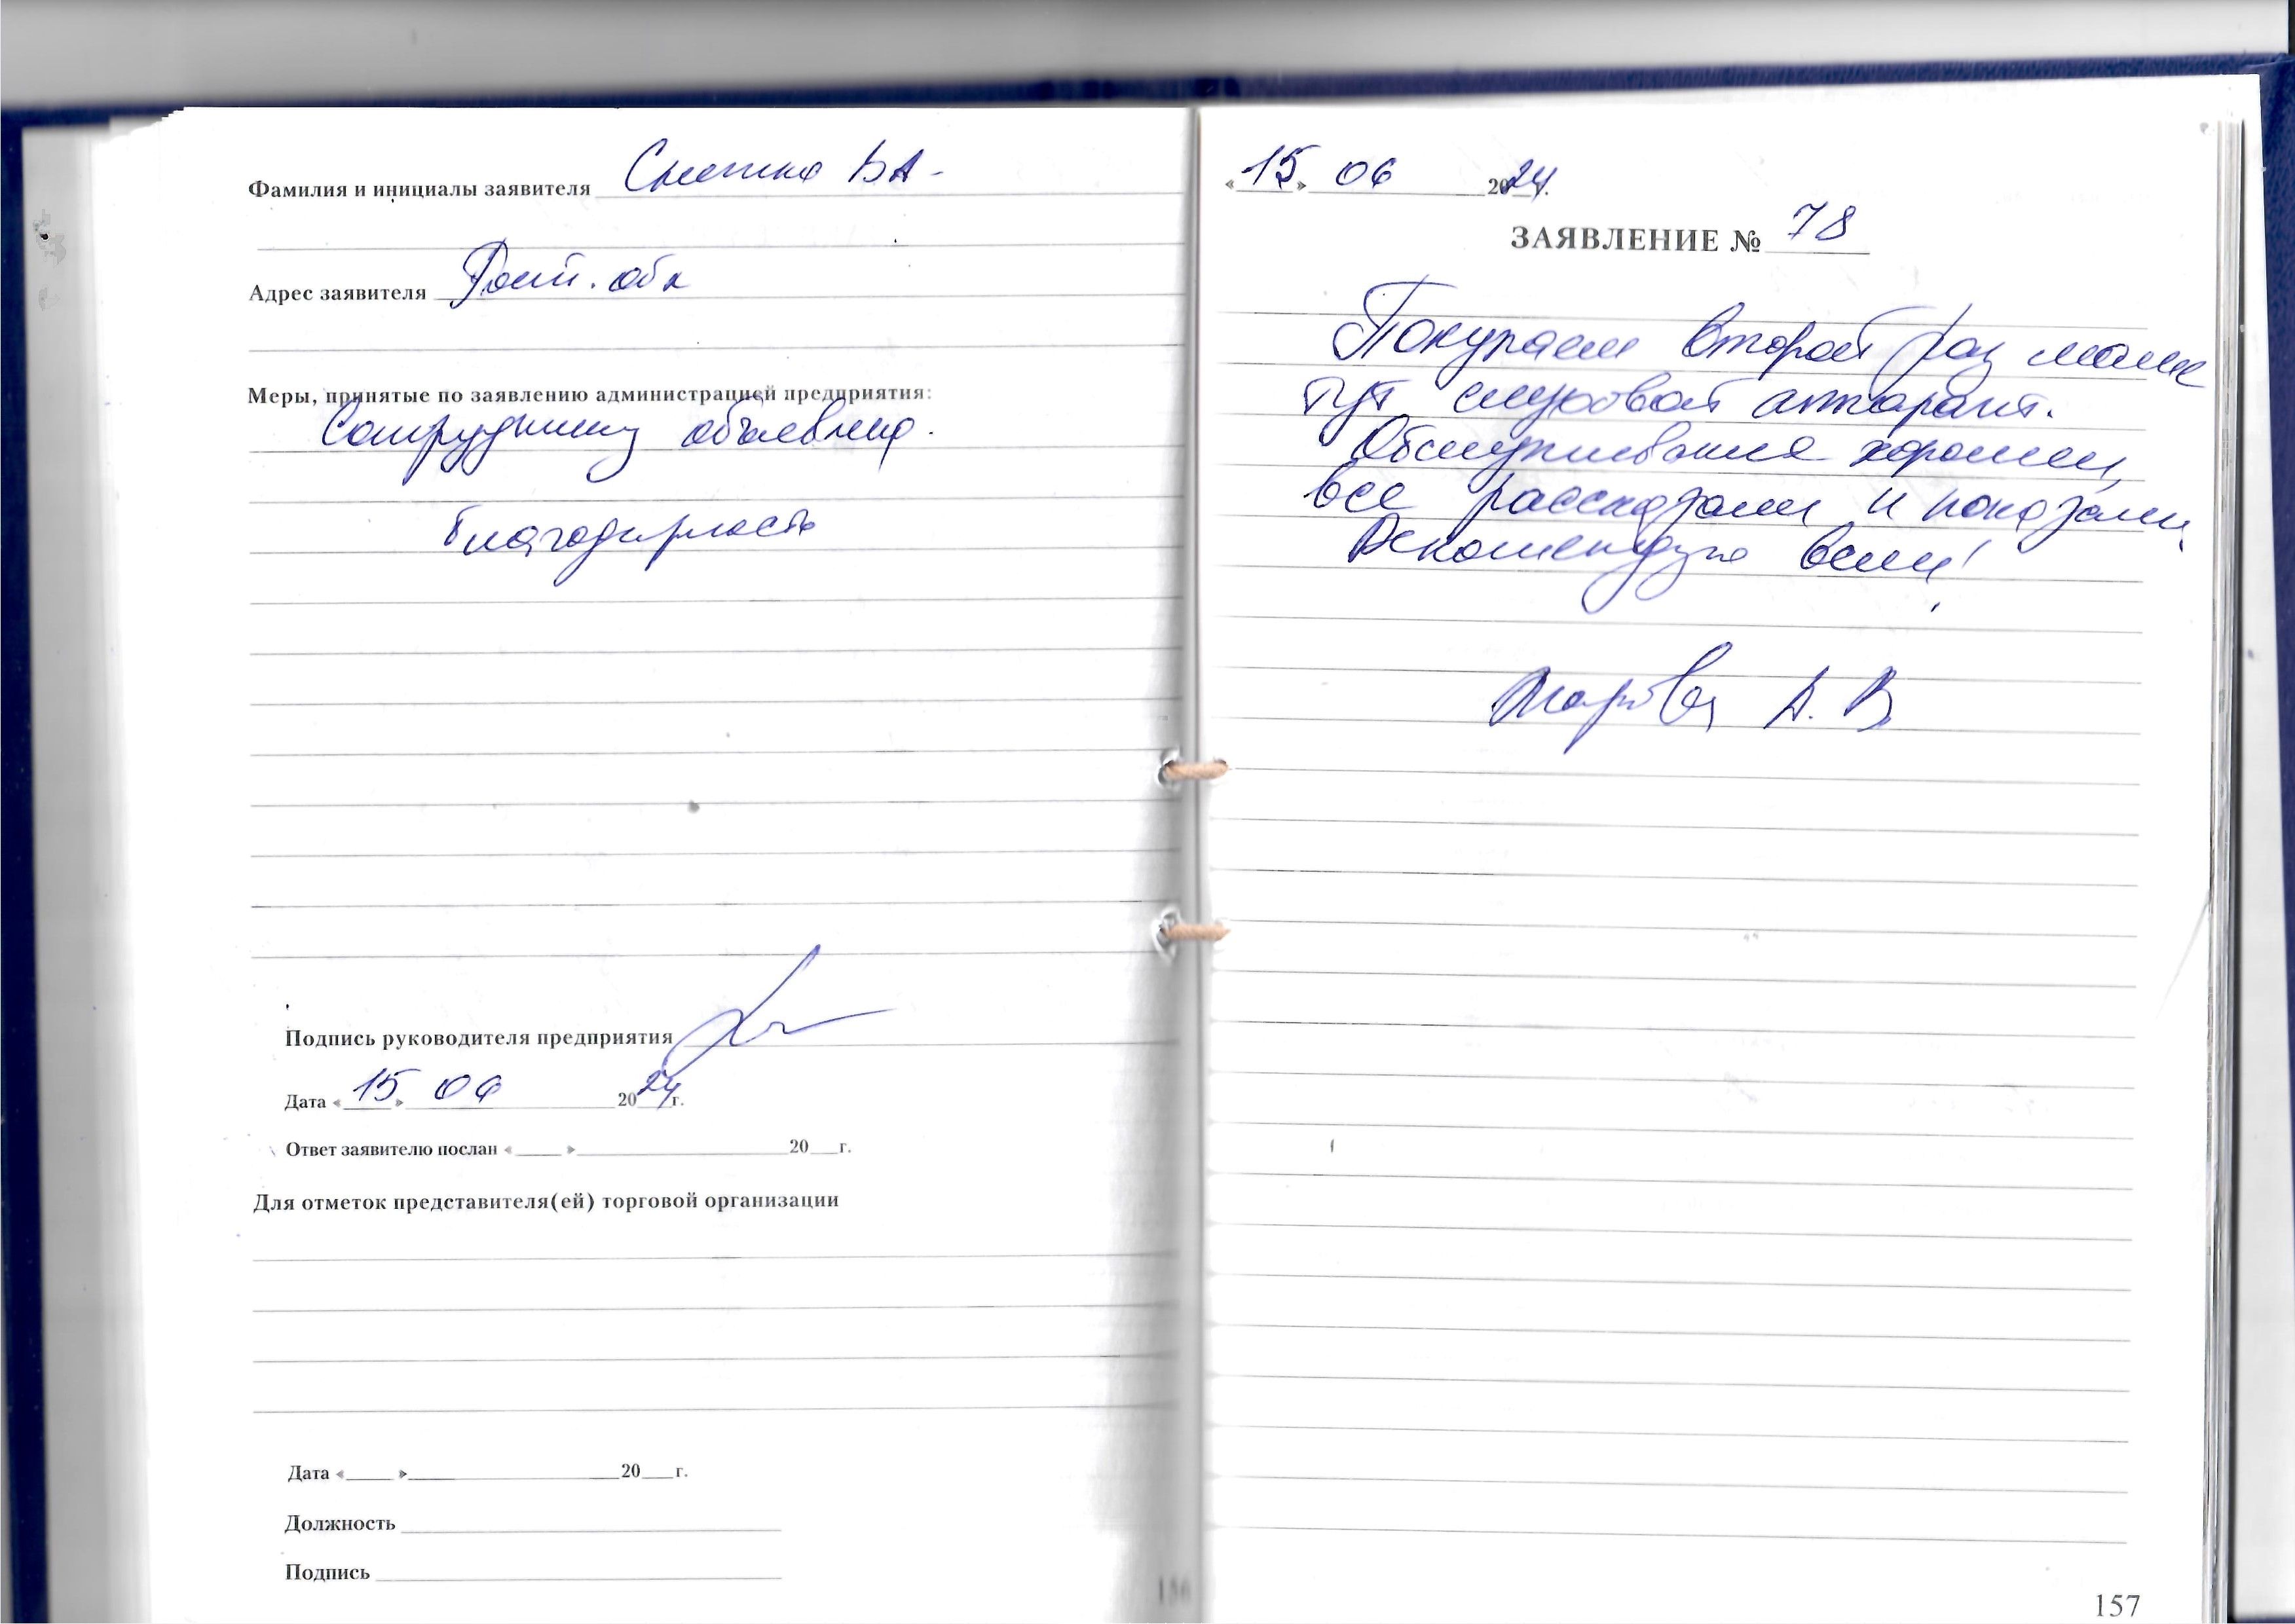 Фамилия и инициалы заявителя Снежко В А-
Адрес заявителя Рост. обл
Меры, принятые по заявлению администрацией предприятия:
Сотруднику объявлена.
благодарность
Подпись руководителя предприятия
Дата « 15 » 06 2024 г.
Ответ заявителю послан « » 20 г.
Для отметок представителя(ей) торговой организации
Дата « » 20 г.
Должность
Подпись
156
« 15 » 06 2024 г.
ЗАЯВЛЕНИЕ № 78
Покупаем второй раз маме
тут слуховой аппарат.
Обслуживание хорошее,
все рассказали и показали.
Рекомендую всем!
А. В
157